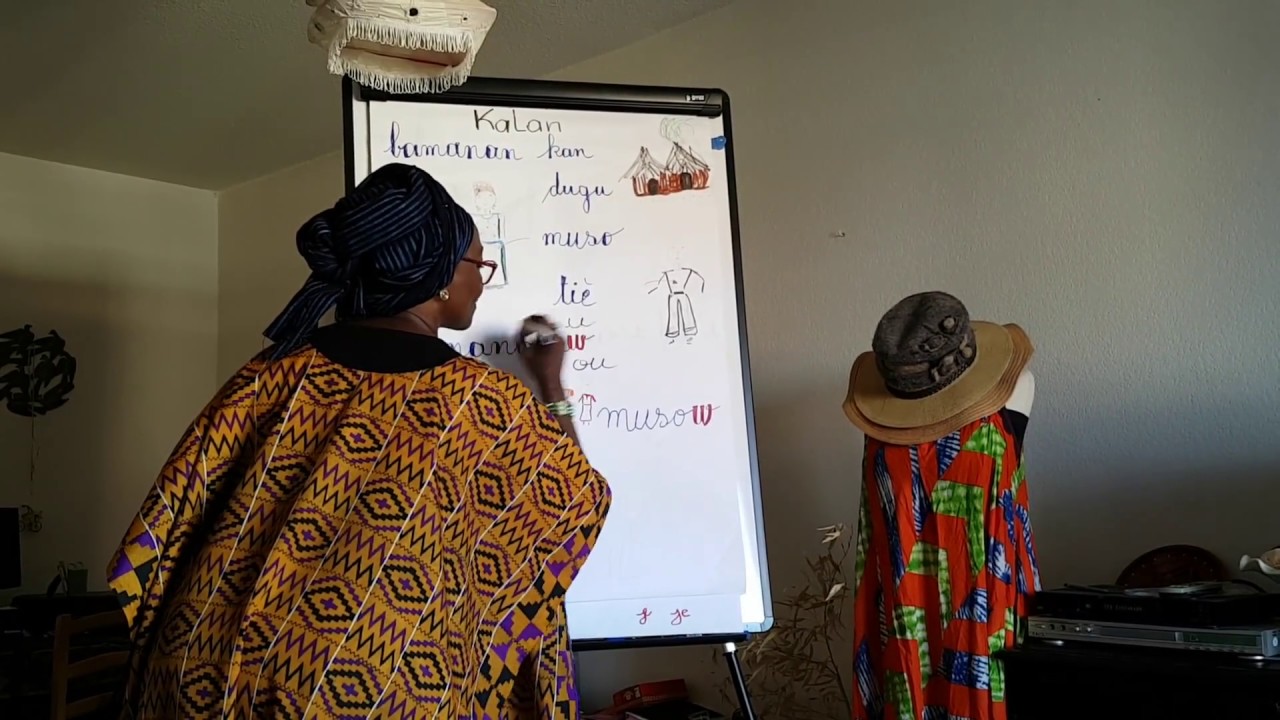 Kalan
bamanan kan
dugu
muso
tiè
u
w
ou
musow
je